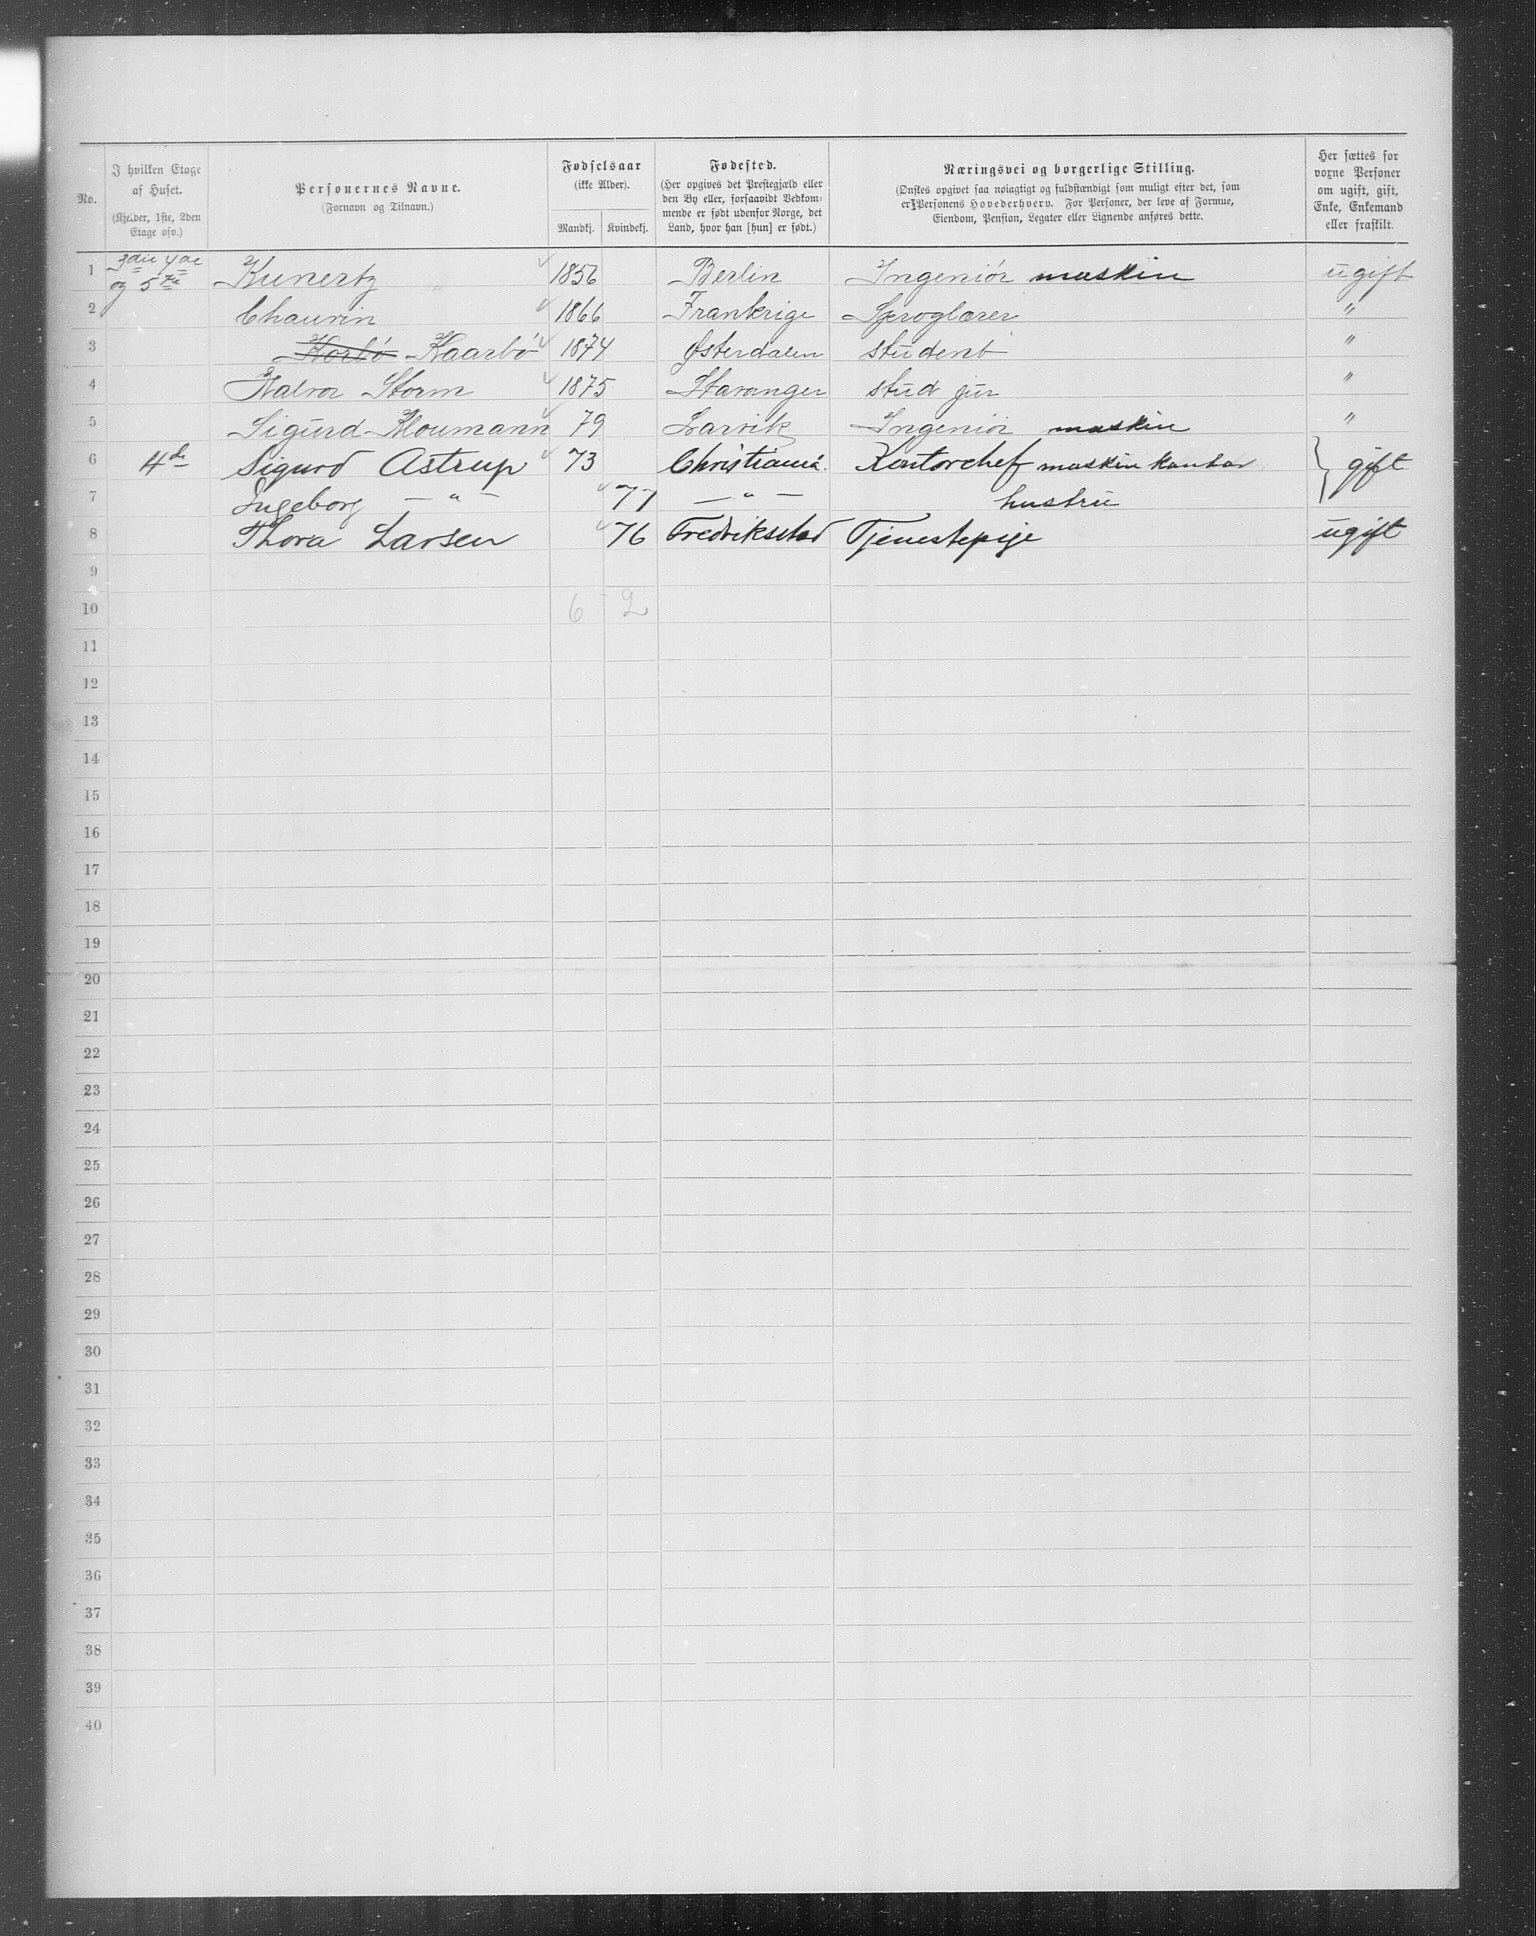 No.
I hvilken Etage af Huset.
(Kjelder, 1ste, 2den Etage osv.)
Personernes Navne.
(Fornavn og Tilnavn.)
Fødselsaar
(ikke Alder).
Mandkj. Kvindekj.
Fødested.
(Her opgives det Prestegjæld eller den By eller, forsaavidt Vedkommende er født udenfor Norge, det Land, hvor han [hun] er født.)
Næringsvei og borgerlige Stilling.
(Ønskes opgivet saa nøiagtigt og fuldstændigt som muligt efter det, som er Personens Hovederhverv. For Personer, der leve af Formue, Eiendom, Pension, Legater eller Lignende anføres dette.
Her sættes for vorne Personer om ugift, gift, Enke, Enkemand eller fraskilt.
1 3die 4de og 5te Kunertz 1856 Berlin Ingeniör maskin ugift
2 Chauvin 1866 Frankrige Sproglærer "
3 Korbö Kaarbö 1874 Østerdalen student "
4 Halvor Storm 1875 Stavanger stud jur "
5 Sigurd Kloumann 79 Larvik Ingeniör maskin "
6 4de Sigurd Astrup 73 Christiania. Kontorchef maskin kontor gift
7 Ingeborg — " — 77 — " — hustru
8 Thora Larsen 76 Fredrikstad Tjenestepige ugift
9
10 6 2
11
12
13
14
15
16
17
18
19
20
21
22
23
24
25
26
27
28
29
30
31
32
33
34
35
36
37
38
39
40